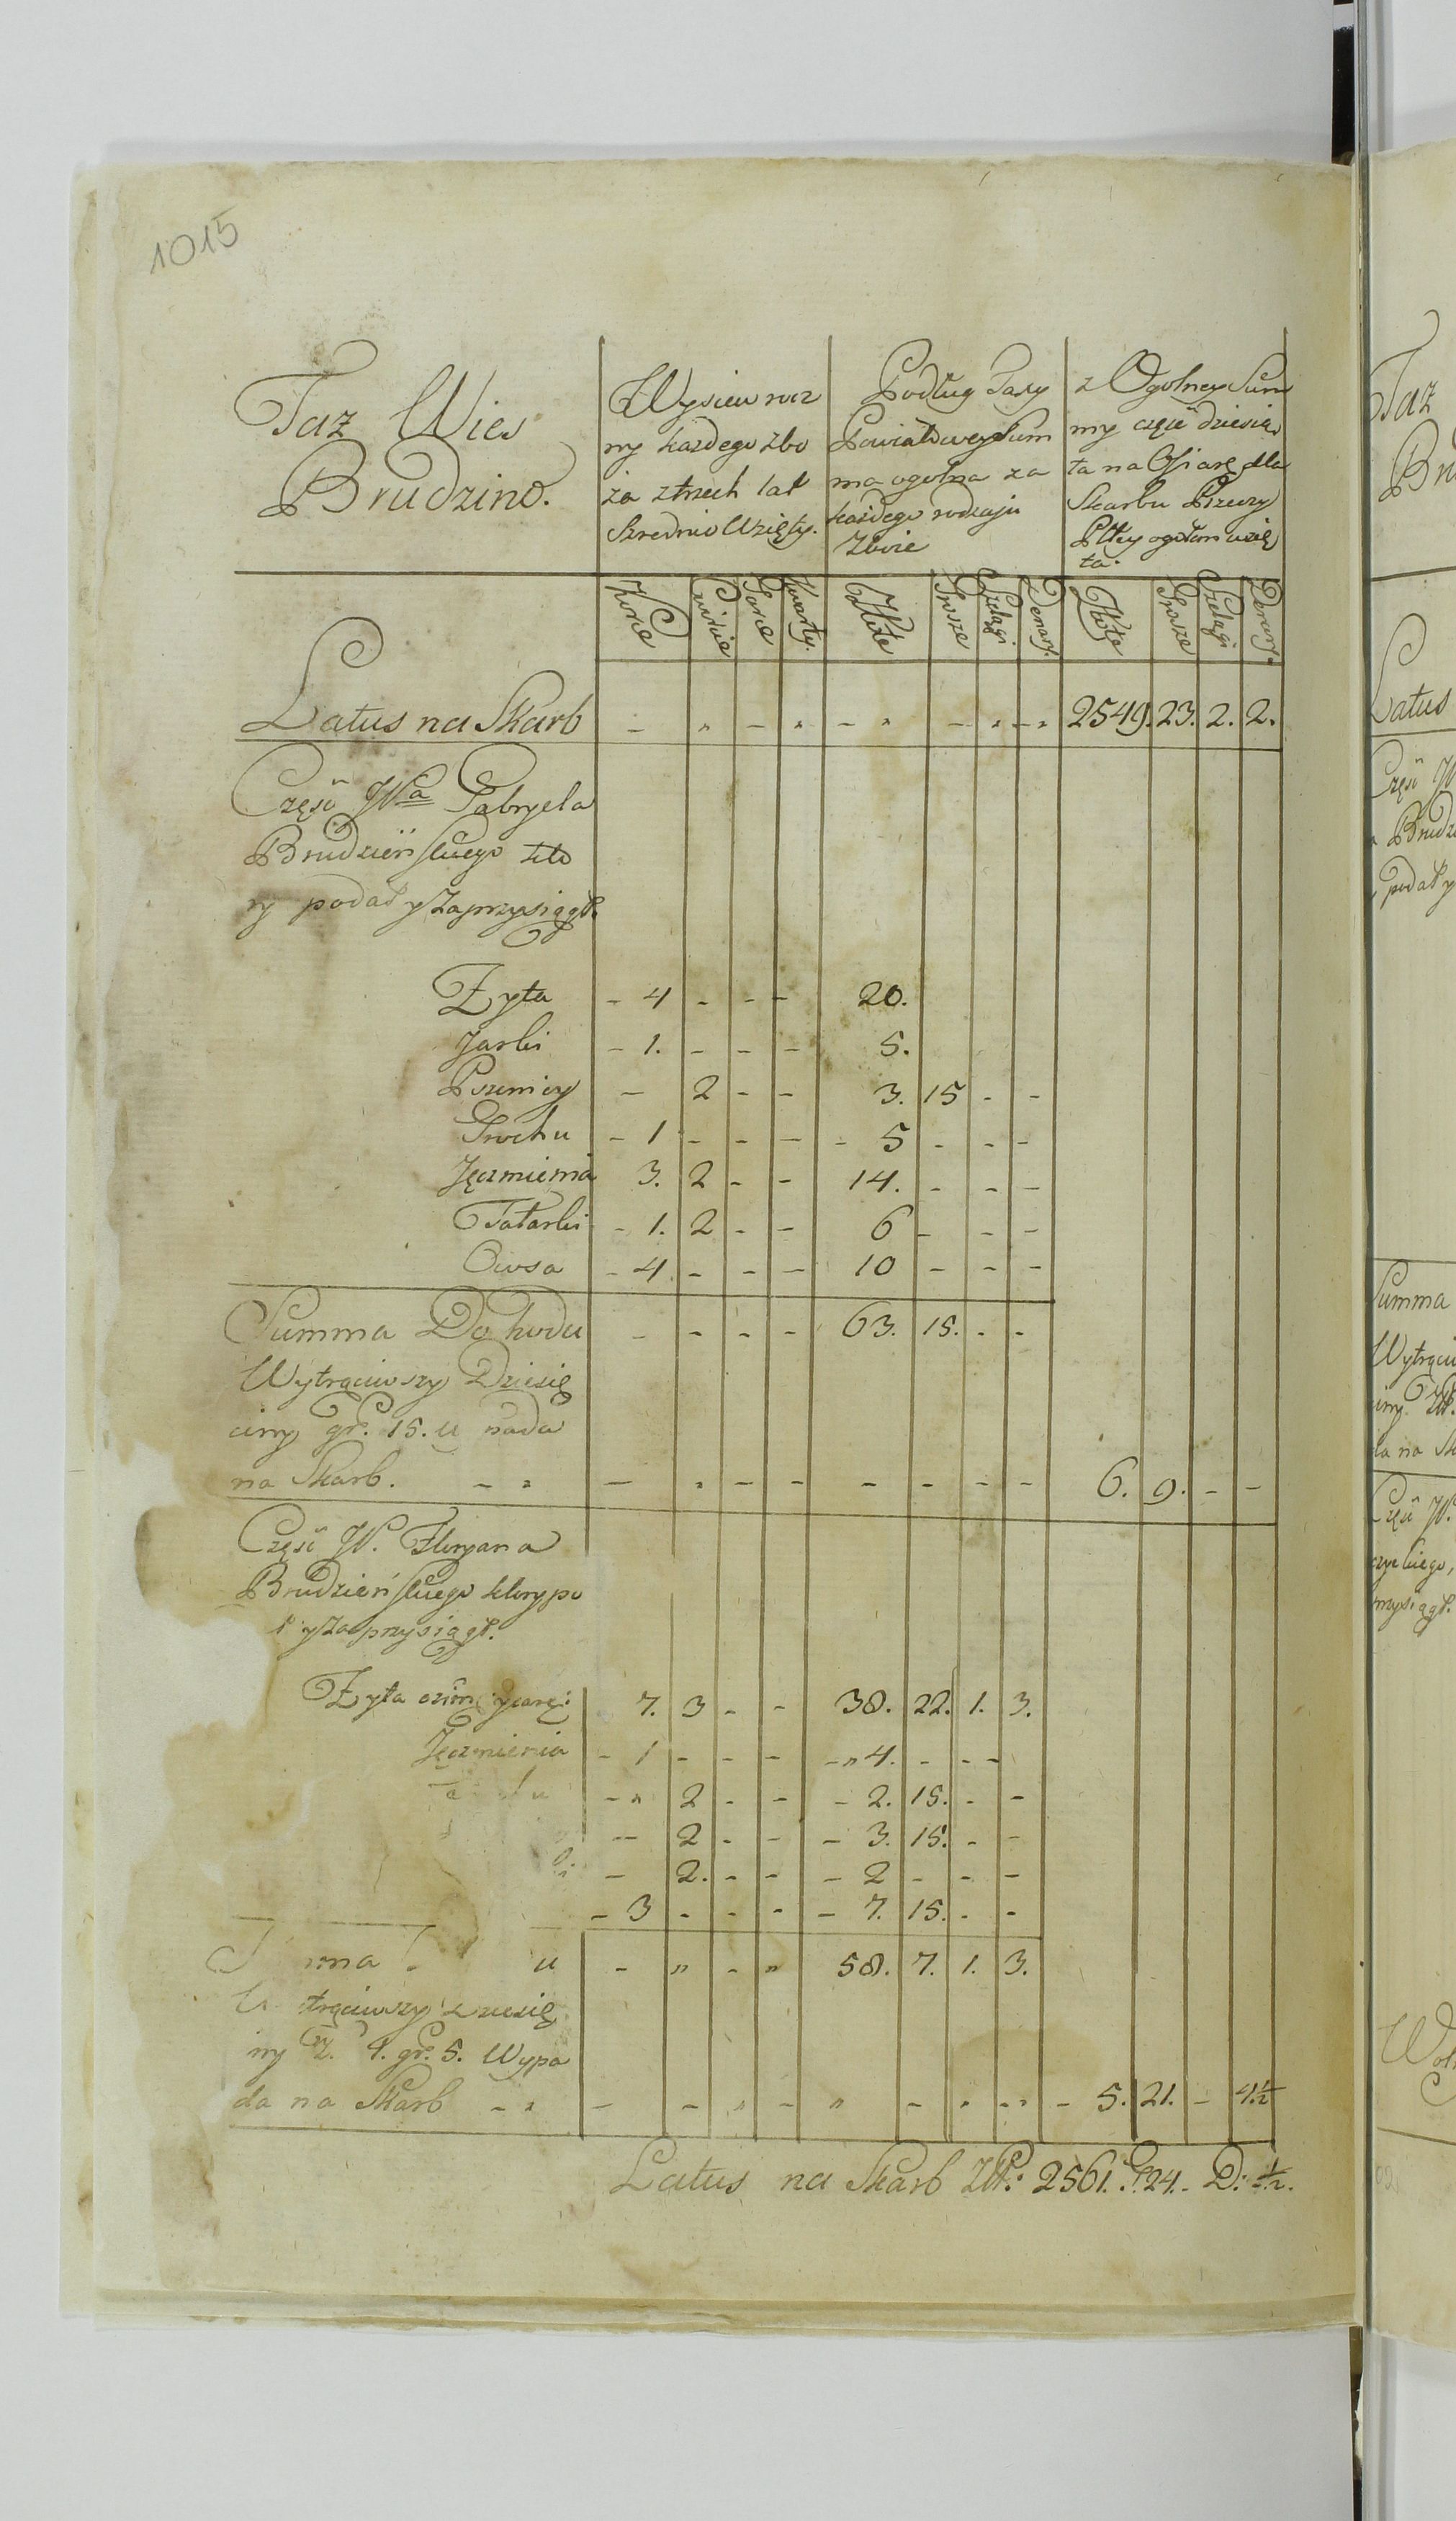 1015
Taz Wies
Brudzino.
Wysiew rocz
ny każdego zbo
ża z trzech lat
Srzednio Wzięty.
Podług Taxy
Powiatowey Sum
ma ogolna za
każdego rodzaju
Zboże
z Ogolney Sum
my częsć dziesią
ta na Ofiarę dla
Skarbu Rzeczy
Pltey ogołem wzię
ta.
Korce Cwircie Garce Kwarty. Złote Grosze Szelągi Denary. Złote Grosze Szelągi Denary.
Latus na Skarb - „ - „ - „ - „ - „ 2549. 23. 2. 2.
Częsć Wa Gabryela
Brudzieńskiego kto
ry podał y Zaprzysiągł.
Zyta - 4 - - - 20.
Jarki - 1. - - - 5.
Pszenicy - 2 - - 3. 15 - -
Grochu - 1 - - - - 5 - - -
Jęczmienia 3. 2 - - 14. - - -
Tatarki - 1. 2 - - 6 - - -
Owsa - 4 - - - 10 - - -
Summa Dochodu - - - - 63. 15. - -
Wytrąciwszy Dziesię
ciny gr. 15. wpada
na Skarb. - „ - „ - - - - - - 6. 9. - -
Częsć W. Floryana
Brudzieńskiego ktory po
ł y Zaprzysiągł.
Zyta ozim: y jarę: 7. 3 - - 38. 22. 1. 3.
Jęczmienia - 1 - - - - „ 4. - - -
- „ 2 - - - 2. 15. - -
- 2 - - - 3. 15. - -
ki - 2. - - - 2 - - -
- 3 - - - - 7. 15. - -
mma u - „ - „ 58. 7. 1. 3.
trąciwszy Dziesię
ny Zł. 1. gr. 5. Wypa
da na Skarb - „ - - „ - „ - „ - „ - 5. 21. - 1.½
Latus na Skarb Złł: 2561. G. 24. - D: ½.